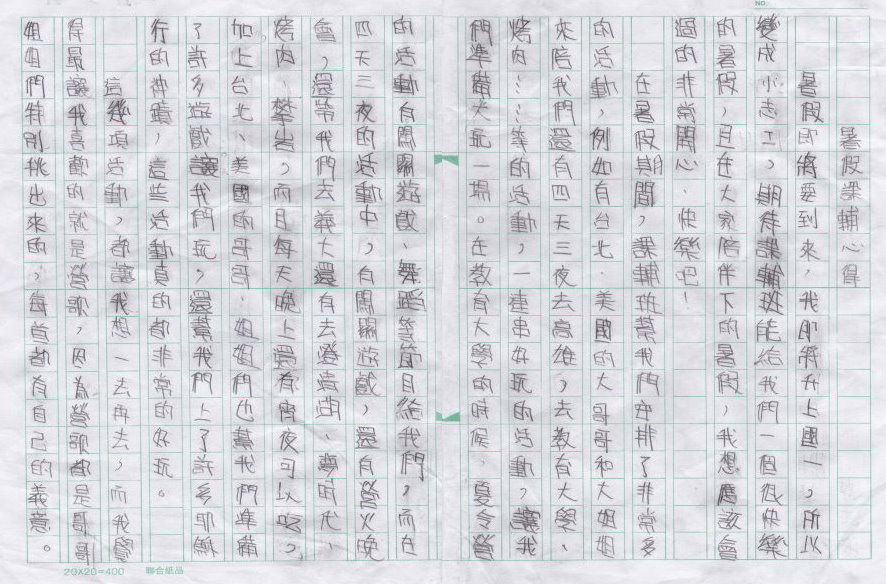 暑假課輔心得
暑假即將要到來,我即將升上國一,所以
變成小志工,期待課輔班能給我們一個很快樂
的暑假,且在大家陪伴下的暑假,我想應該會
過的非常開心、快樂吧!
在暑假期間,課輔班幫我們安排了非常多
的活動,例如有台北、美國的大哥哥和大姐姐
來陪我們還有四天三夜去高雄,去教育大學、
烤肉……等的活動,一連串好玩的活動,讓我
們準備大玩一場。在教育大學的時候,夏令營
的活動有闖關遊戲、舞蹈等節目給我們,而在
四天三夜的活動中,有闖關遊戲,還有營火晚
會,還帶我們去義大還有去澄清湖、夢時代、
烤肉、攀岩,而且每天晚上還有宵夜可以吃。
加上台北、美國的哥哥、姐姐們也幫我們準備
了許多遊戲讓我們玩,還幫我們上了許多耶穌
行的神蹟,這些活動真的都非常的好玩。
這幾項活動,都讓我想一去再去,而我覺
得最讓我喜歡的就是營歌,因為營歌都是哥哥
姐姐們特別挑出來的,每首都有自己的義意。
NO.
20X20=400 聯合紙品